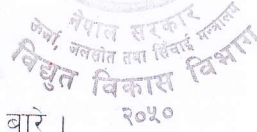 नेपाल सरकार
ऊर्जा, जलस्रोत तथा सिंचाई मन्त्रालय
विद्युत विकास विभाग
२०५०
बारे ।